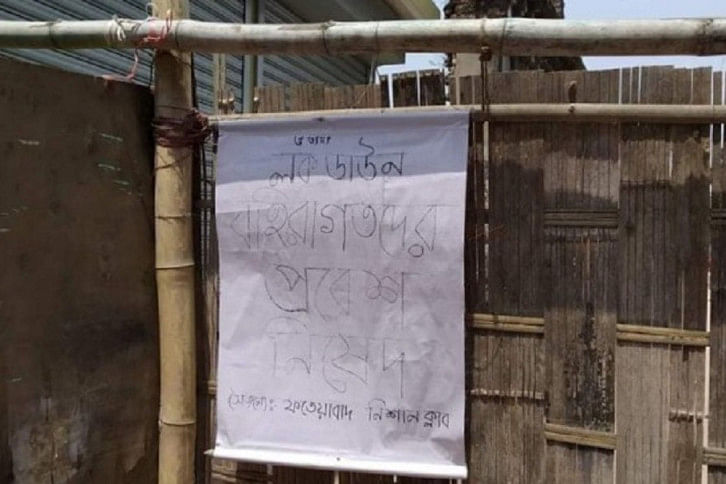 লকডাউন
বহিরাগতদের
প্রবেশ
নিষেদ
সৌজন্যেঃ ফতেয়াবাদ নিশান ক্লাব